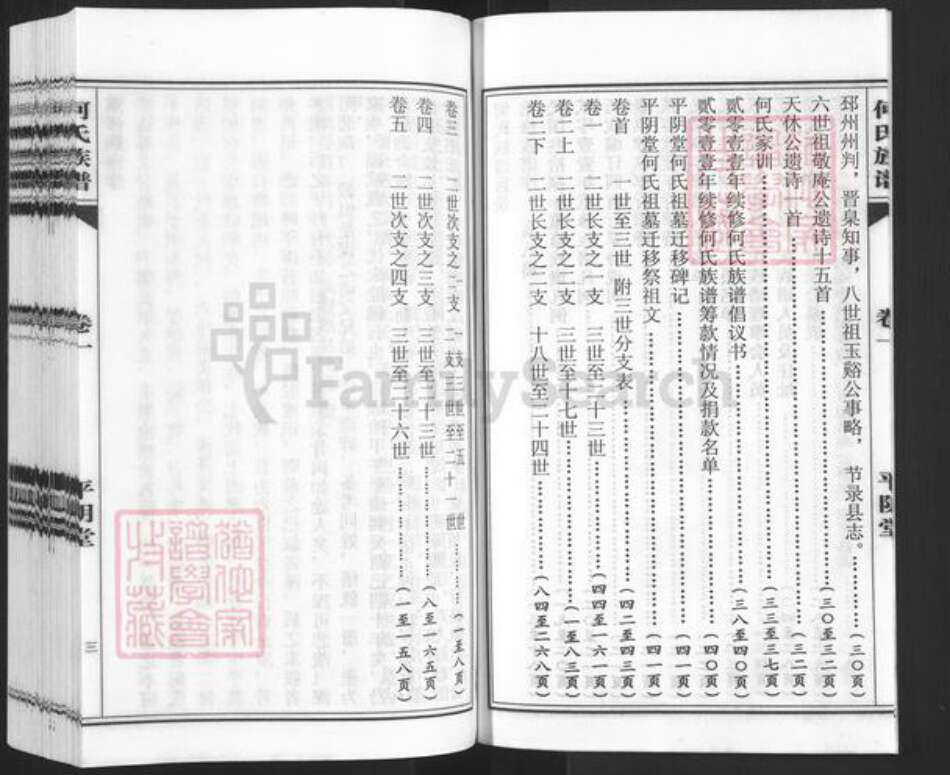 何氏族谱
卷一
平阴堂
邳州州判，晋臬知事，八世祖玉谿公事略，节录县志。…………（三〇页）
六世祖敬庵公遗诗十五首…………（三〇至三二页）
天休公遗诗一首…………（三二页）
何氏家训…………（三三至三七页）
贰零壹壹年续修何氏族谱倡议书…………（三八至四〇页）
贰零壹壹年续修何氏族谱筹款情况及捐款名单…………（四〇页）
平阴堂何氏祖墓迁移碑记…………（四一页）
平阴堂何氏祖墓迁移祭祖文…………（四一页）
卷首 一世至三世 附三世分支表…………（四二至四三页）
卷一 二世长支之一支 三世至二十三世…………（四四至一六一页）
卷二上 二世长支之二支 三世至十七世…………（一至八三页）
卷二下 二世长支之二支 十八世至二十四世…………（八四至二六八页）
卷三 二世次支之
三世至五世
世至二十一世
…………（一至八页）
卷四 二世次支之三支 三世至二十三世…………（八至一六五页）
卷五 二世次支之四支 三世至二十六世…………（一至一五八页）
何氏族谱
卷一
三
谱学会
收藏
FamilySearch